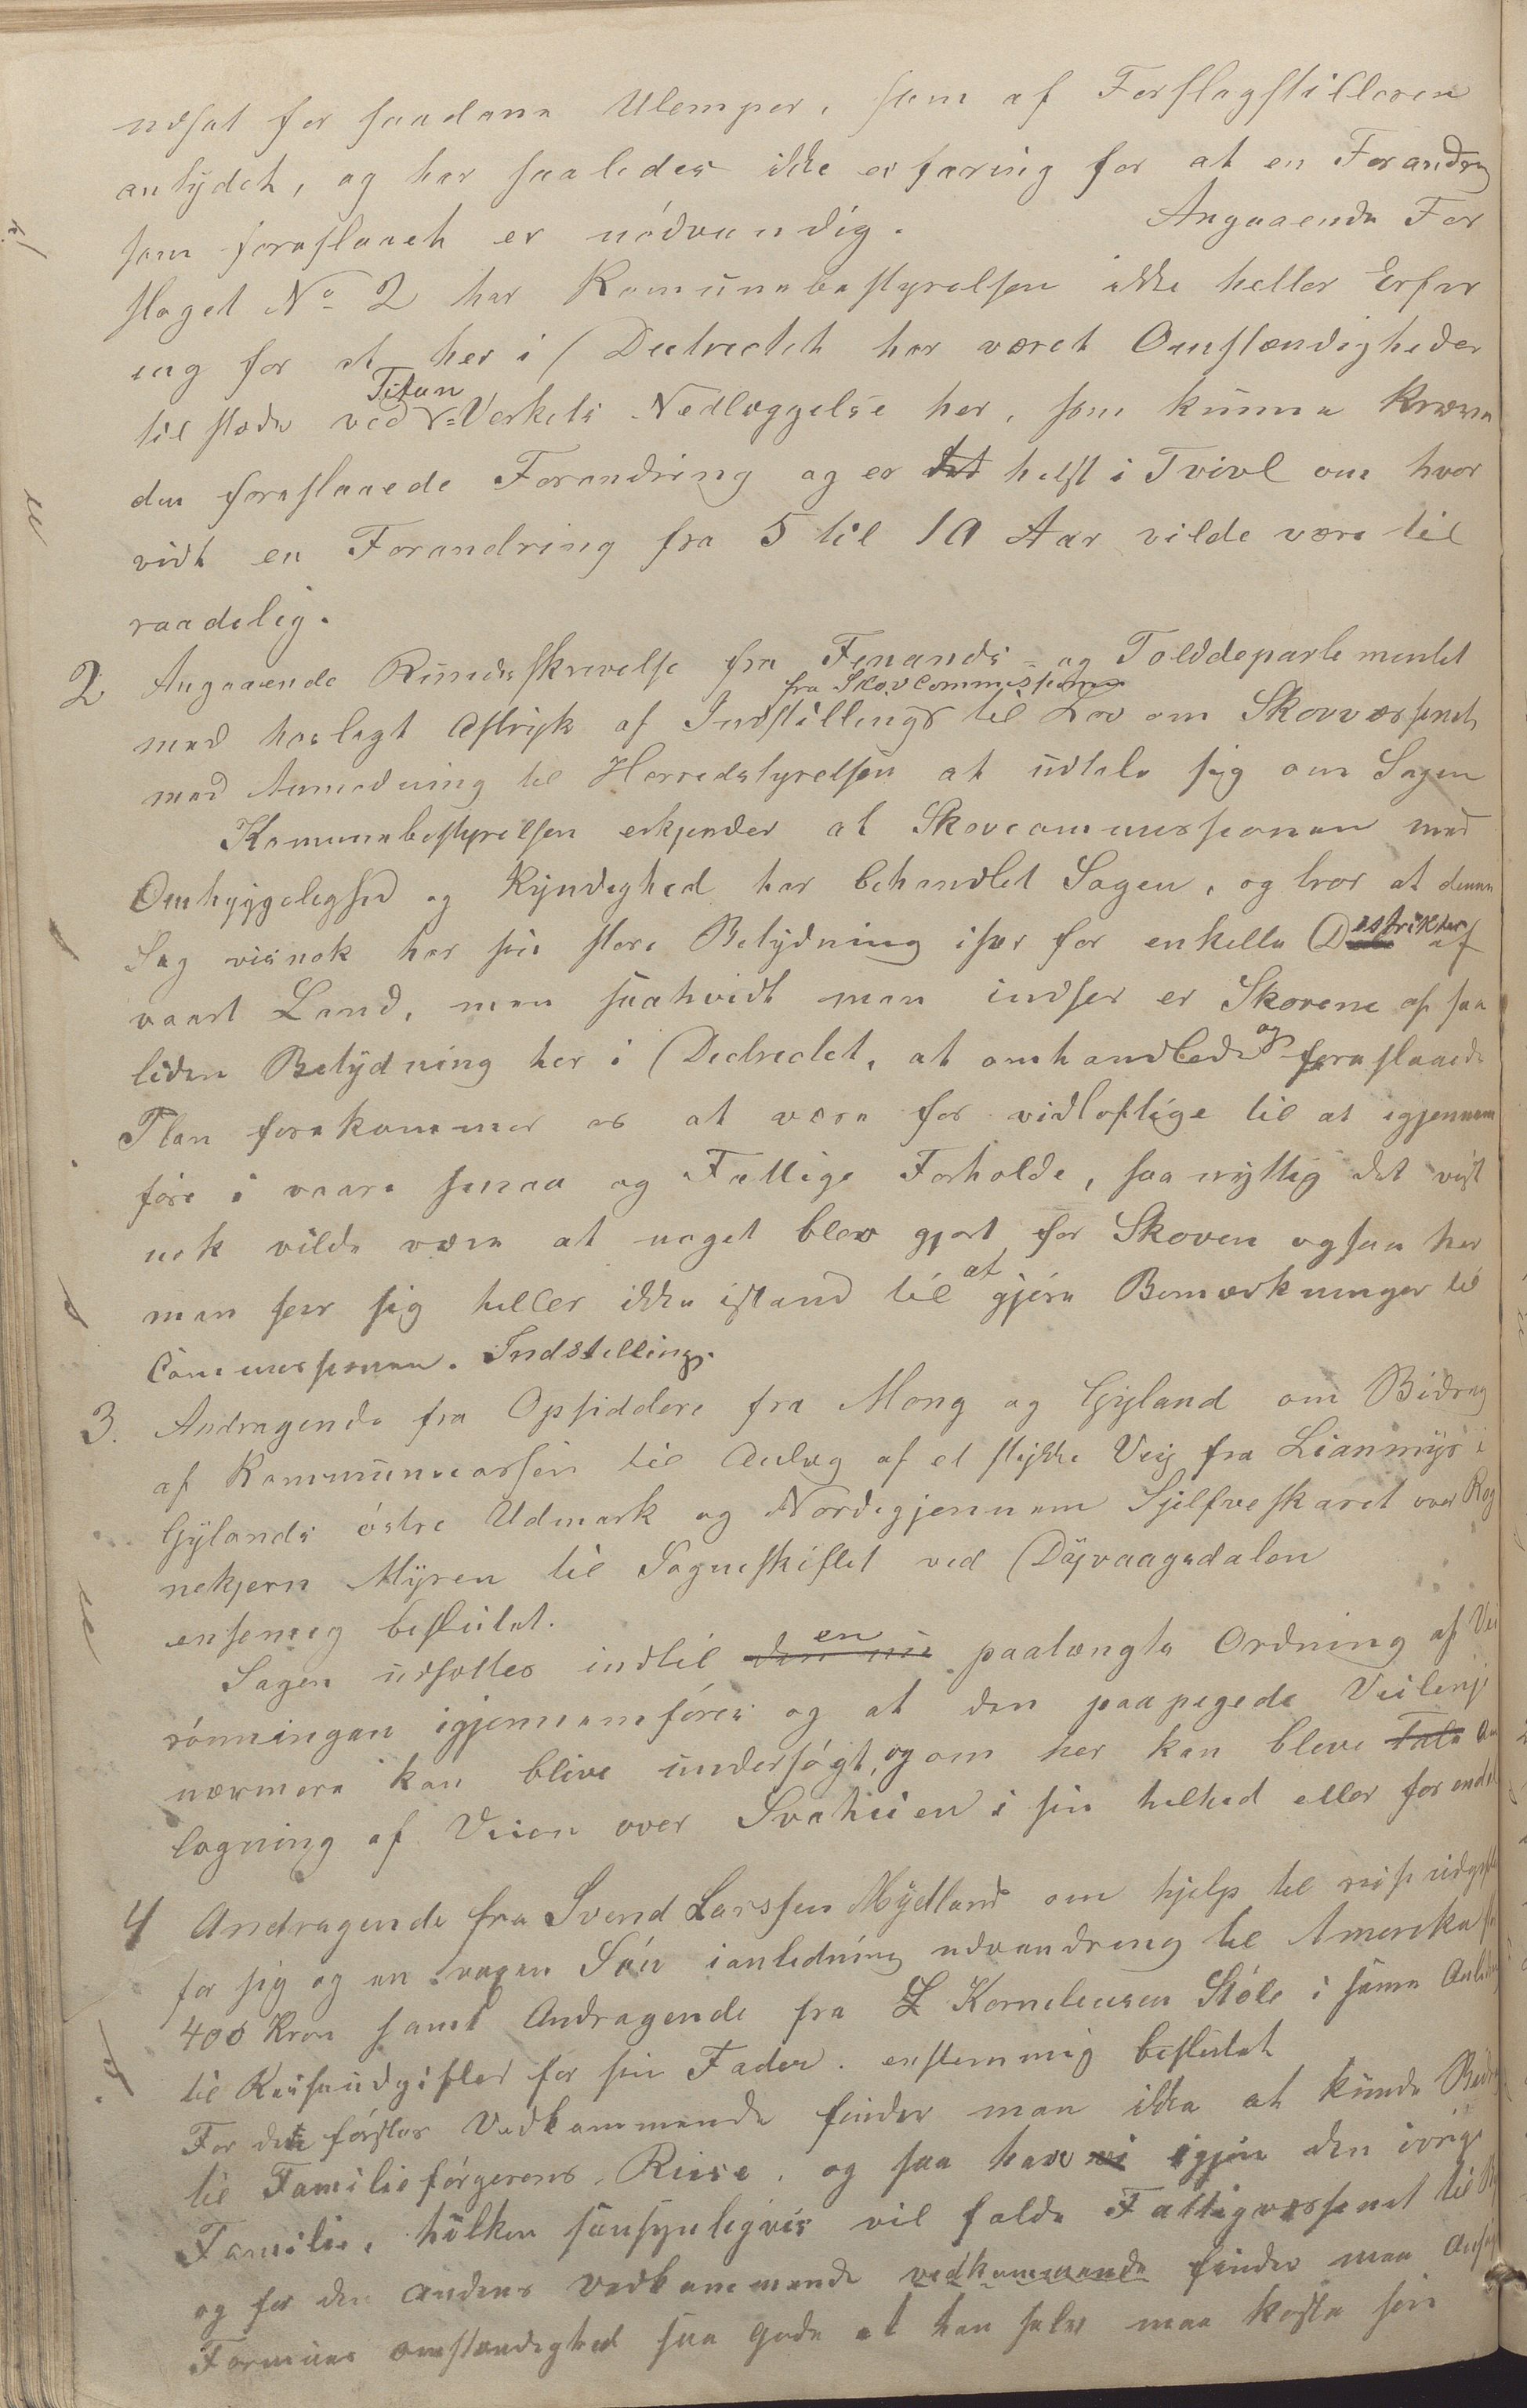 udsat for saadane Ulemper, som af Forslagstilleren
antydet, og har saaledes ikke erfaring for at en Forandrg
som foreslaaet er nödvendig. Angaaende For
slaget No 2 har Komunebestyrelsen ikke heller Erfar
ing for at her i Destrectet har været Omstændigheder
tilstede ved Titan Verkets Nedlæggelse her, som kunne kræve
den foreslaaede Forandring og er det helst i Tvivl om hvor
vidt en Forandring fra 5 til 10 Aar vilde være til
raadelig.
2 Angaaende Rundskrivelse fra Finands- og Tolddepartementet
med hoslagt Aftryk af Indstillings fra Skovcommissionen til Lov om Skovvæsenet
med Anmodning til Herredstyrelsen at udtale sig om Sagen
Komunebestyrelsen erkjender at Skovcommissionen med
Omhyggelighed og Kyndighed har behandlet Sagen, og tror at denne
Sag visnok har sin store Betydning især for enkelte Destrikter af
vaart Land, men saahvidt man indser er Skovene af saa
liden Betydning her i Destrectet, at omhandlede og foreslaaede
Plan forekommer os at være for vidløftige til at igjennem
føre i vaare smaa og Fattige Forholde, saa nyttig det vist
nok vilde være at noget blev gjort for Skoven ogsaa her
man seer sig heller ikke istand til at gjöre Bemærkninger til
Commissionen. Indstilling.
3. Andragende fra Opsiddere fra Mong og Gyland om Bidrag
af Kommunecassen til Anlæg af et stykke Veij fra Lianmyr i
Gylands östre Udmark og Nordigjennem Sjelfveskaret over Rog
nekjern Myren til Sogneskiftet ved Dyvaagsdalen
ensemig besluttet.
Sagen udsættes indtil den nu en paatængte Ordning af Vei
rönningen igjennemföres og at den paapegede Veilenje
nærmere kan blive undersögt, og om her kan bleve Tale An
lægning af Veien over Svaheien i sin helhed eller for endel
4 Andragende fra Svend Larssen Mydland om hjelp til reiseudgifter
for sig og en voxen Sön ianledning udvandring til Amerika
400 Kron samt Andragende fra L Korneliusen Støle i same Anledn
til Reiseudgifter for sin Fader. enstemmig besluttet
For den förstes Vedkommende finder man ikke at kunde Bidrag
til Familieförgerens Reise, og saa have vi igjen den övrige
Familie, hvilken sansynligvis vil falde Fattigvæssenet til
og for den andens Vedkommende vedkommende finder man
Formues omstændighed saa gode at han selv maa koste sin